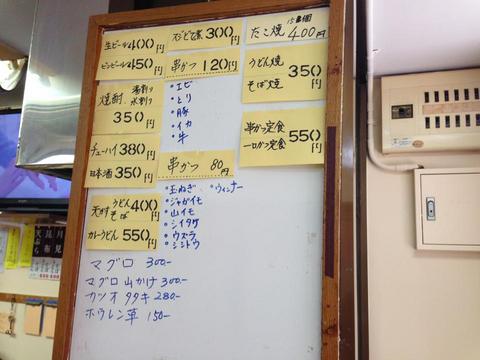 生ビール400円
ビンビール450
焼酎 湯割り 水割り
350円
チューハイ 380円
日本酒 350円
天ぷら うどん そば 400円
カレーうどん 550円
スジどて煮 300円
串かつ 120円
・エビ
・とり
・豚
・イカ
・牛
串かつ 80円
・玉ねぎ ・ウィンナー
・ジャガイモ
・山イモ
・シイタケ
・ウズラ
・シシトウ
たこ焼 15個 400円
うどん焼
そば焼
350円
串かつ定食
一口かつ定食
550円
マグロ 300-
マグロ山かけ 300-
カツオタタキ 280-
ホウレン草 150-
月見
昆布
天ぷら